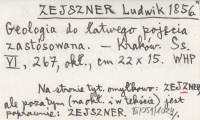 ZEJSZNER Ludwik 1856
Geologia do łatwego pojęcia
zastosowana. — Kraków. Ss.
VI, 267, okł., cm 22 x 15. WHP
Na stronie tyt. omyłkowo: ZEJZNER
ale pozatym (na okł. i w tekście) jest
poprawnie: ZEJSZNER.